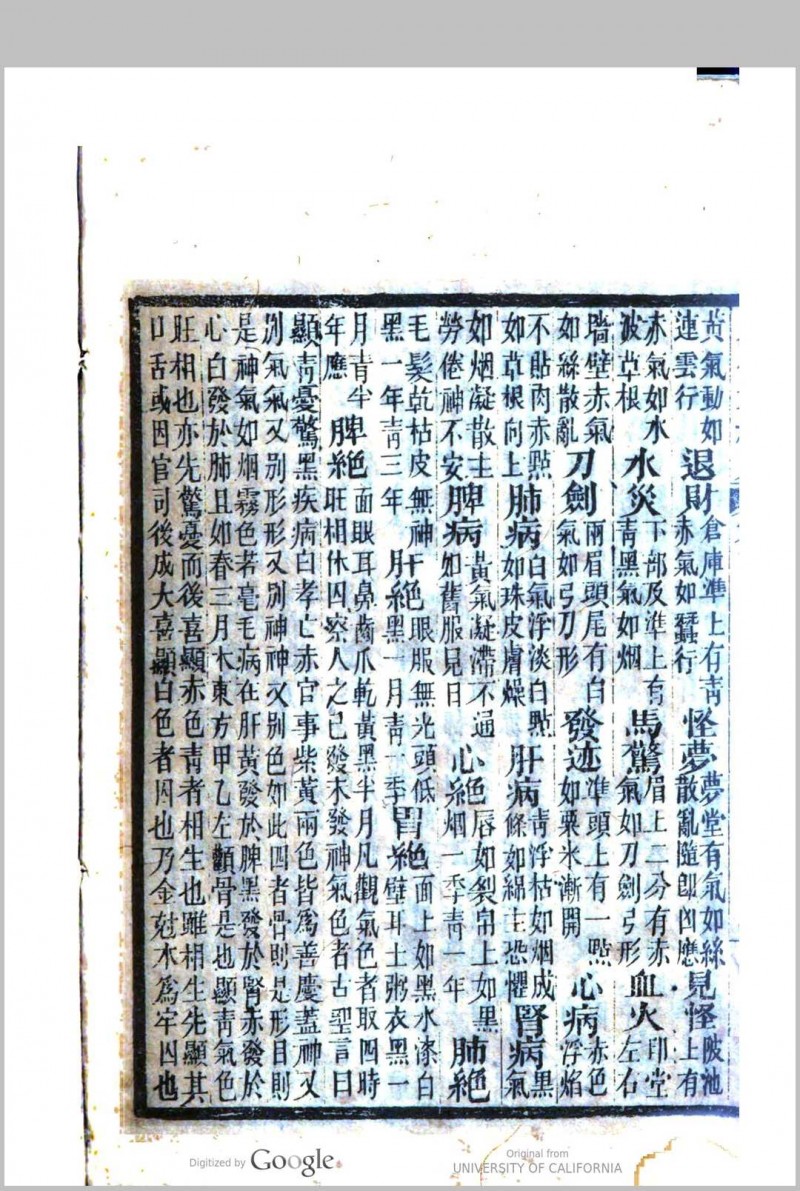 黃氣動如
連雲行
退財
倉庫準上有青
赤氣如蠶行
怪夢
夢堂有氣如絲
散亂隨卽凶應
見怪
陂池
上有
赤氣如水
波草根
水災
下部及準上有
青黑氣如烟
馬驚
眉上二分有赤
氣如刀劍弓形
血火
印堂
左右
墻壁赤氣
如絲散亂
刀劍
兩眉頭尾有白
氣如引刀形
發迹
準頭上有一點
如粟米漸開
心病
赤色
浮焰
不貼肉赤點
如草根向上
肺病
白氣浮淡白點
如珠皮膚燥
肝病
青浮枯如烟成
條如綿主恐懼
腎病
黑
氣
如烟凝散主
勞倦神不安
脾病
黃氣凝滯不通
如舊服見日
心絕
唇如裂帛上如黑
烟一季青一年
肺絕
毛髮乾枯皮無神
黑一年青三年
肝絕
眼服無光頭低
黑一月青一季
胃絕
面上如黑水漆白
壁耳土粥衣黑一
月青半
年應
脾絕
面眼耳鼻齒爪乾黃黑半月凡觀氣色者取四時
旺相休囚察人之已發未發神氣色者古聖言曰
顯青憂驚黑疾病白孝亡赤官事紫黃兩色皆爲善慶蓋神又
別氣氣又別形形又別神神又別色如此四者骨則是形目則
是神氣如烟霧色若毫毛病在肝黃發於脾黑發於腎赤發於
心白發於肺且如春三月木東方甲乙左顴骨是也顯青氣色
旺相也亦先驚憂而後喜顯赤色青者相生也雖相生先顯其
口舌或因官司後成大喜顯白色者囚也乃金尅木爲牢囚也
Digitized by Google
Original from
UNIVERSITY OF CALIFORNIA